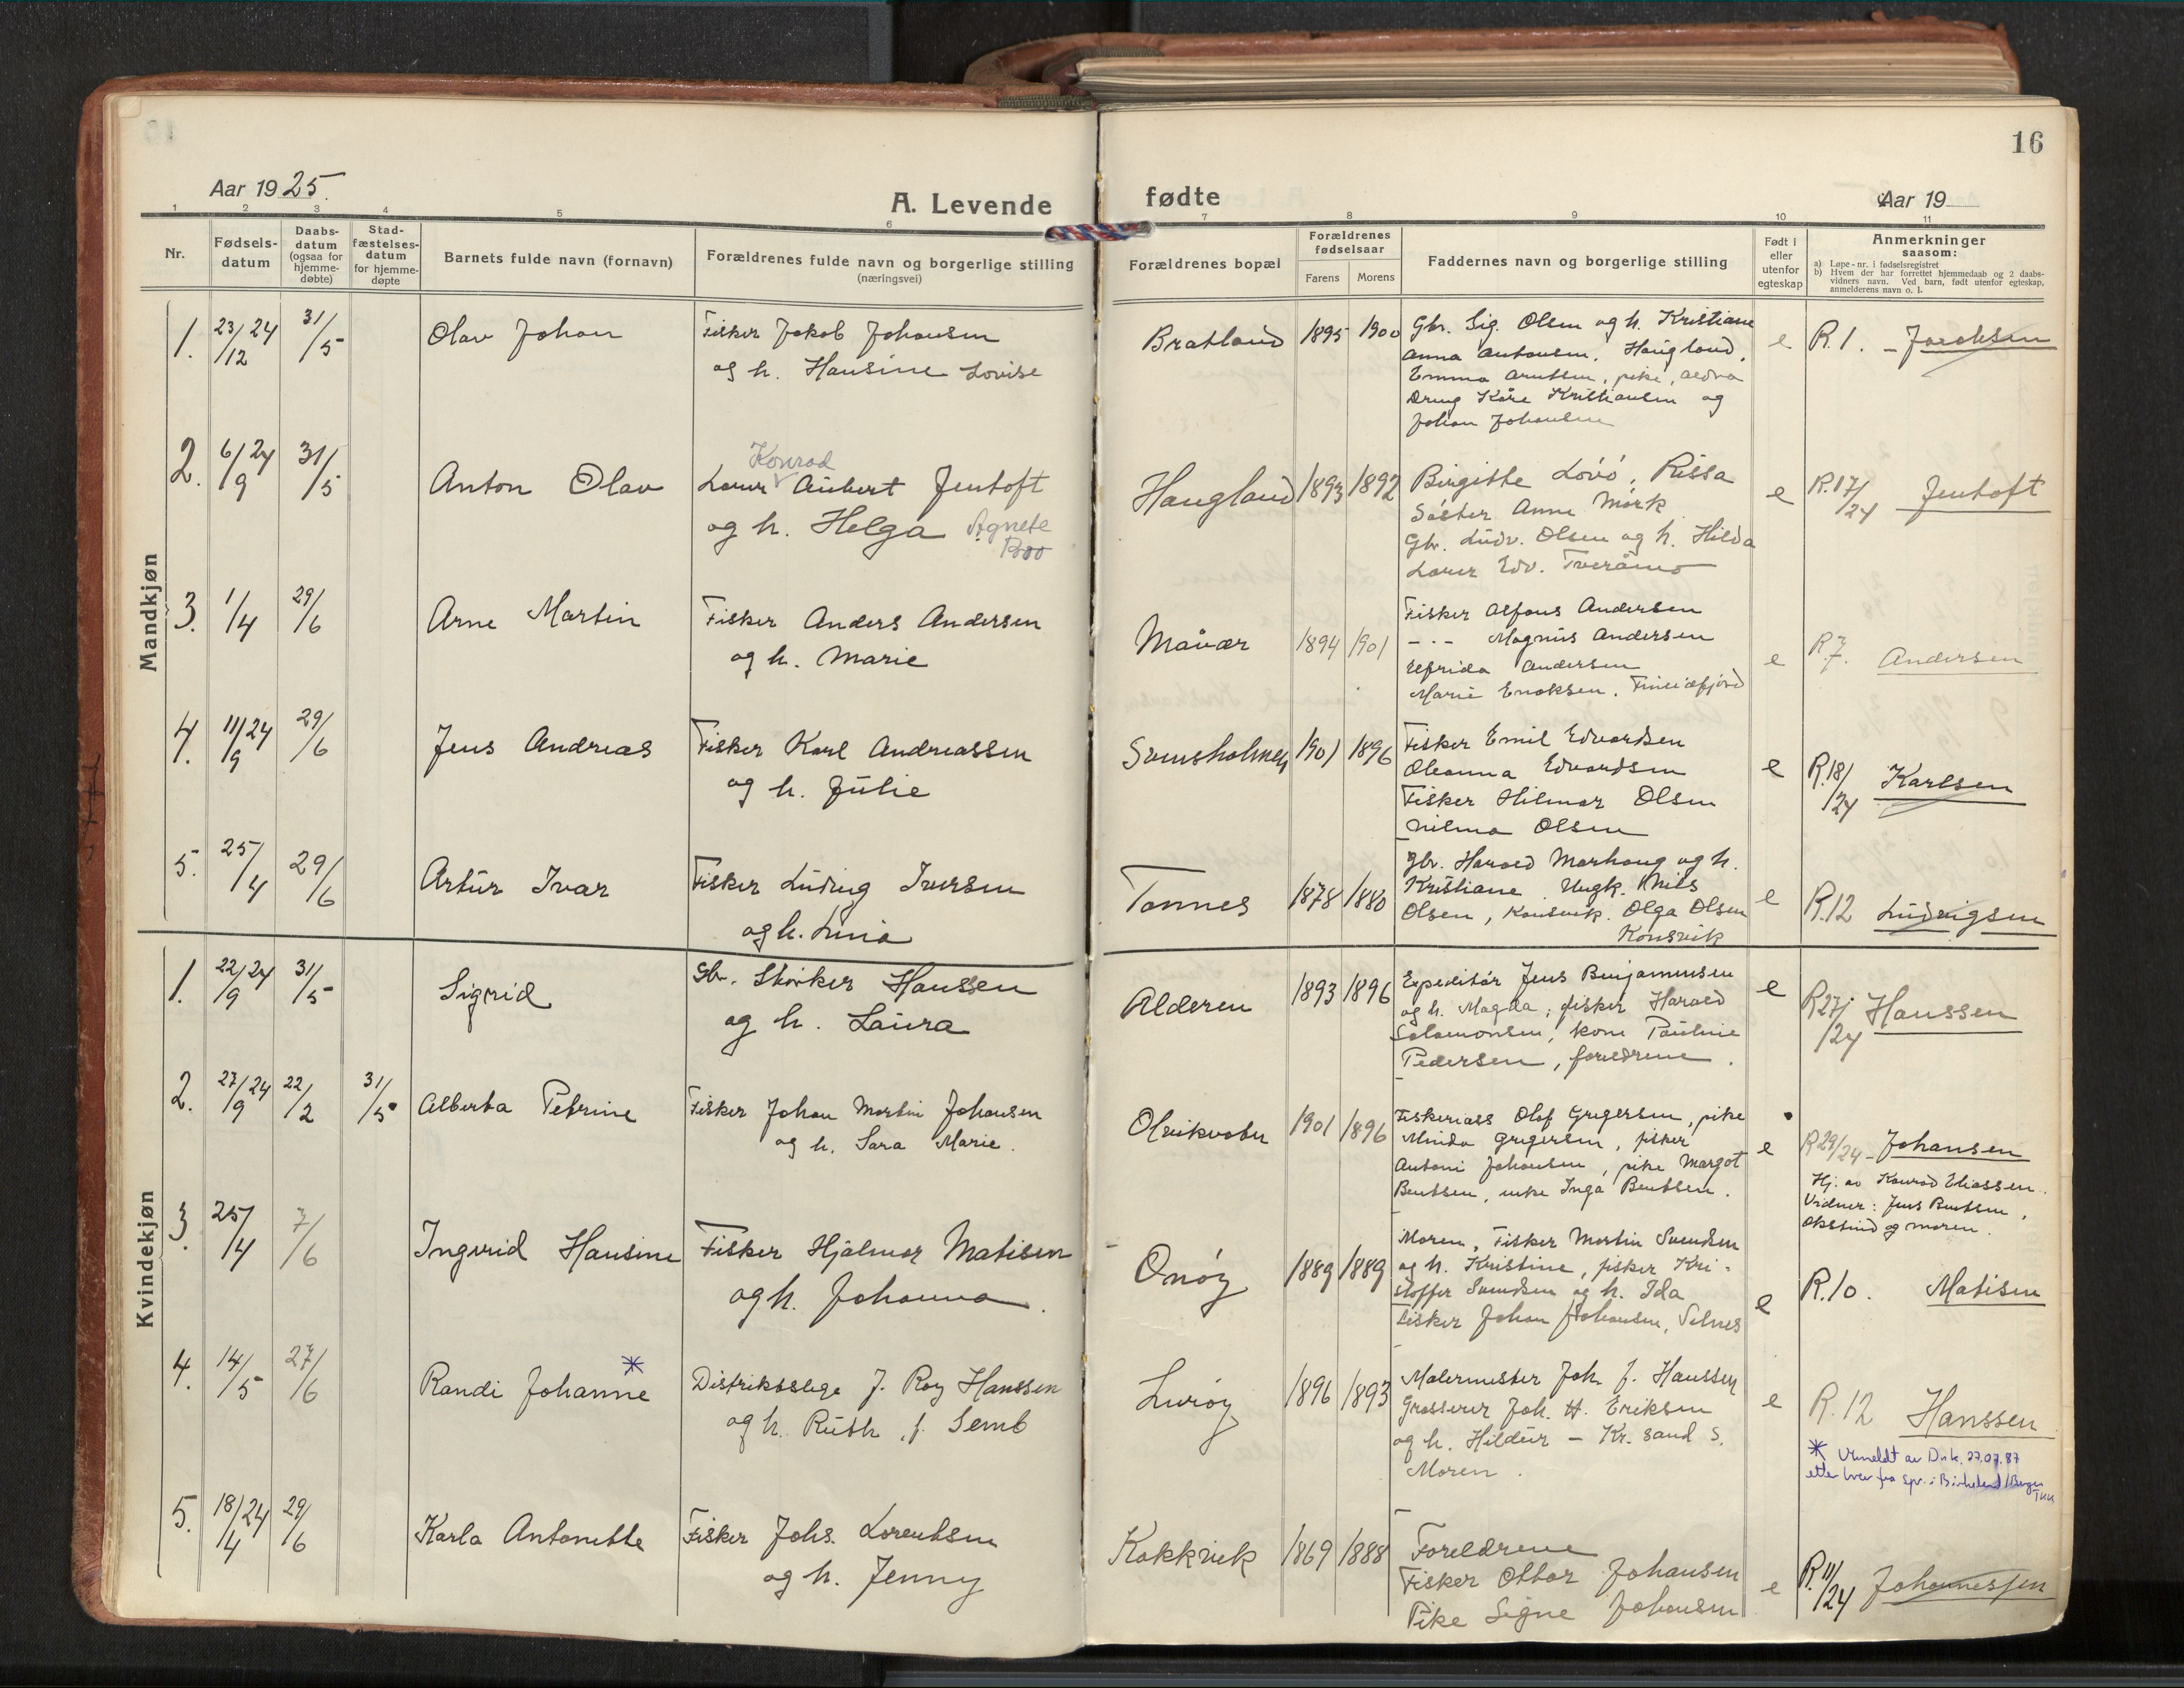 16
Aar 1925.
A. Levende fødte
Aar 19
1 2 3 4 5 6 7 8 9 10 11
Nr.
Fødsels-
datum
Daabs-
datum
(ogsaa for
hjemme-
døbte)
Stad-
fæstelses-
datum
for hjemme-
døpte
Barnets fulde navn (fornavn)
Forældrenes fulde navn og borgerlige stilling
(næringsvei)
Forældrenes bopæl
Forældrenes
fødselsaar
Farens Morens
Faddernes navn og borgerlige stilling
Født i
eller
utenfor
egteskap
Anmerkninger
saasom:
a) Løpe-nr. i fødselsregistret
b) Hvem der har forrettet hjemmedaab og 2 daabs-
vidners navn. Ved barn, født utenfor egteskap,
anmelderens navn o. l.
Mandkjøn
1. 23/12 24 31/5 Olav Johan
Fisker Jakob Johansen
og h. Hansine Lovise
Bratland 1895 1900
Gbr. Sig. Olsen og h. Kristiane
Anna Antonsen, Haugland,
Emma Arntsen, pike, Aldra
Dreng Kåre Kristiansen og
Johan Johansen
e R.1. - Jacobsen
2. 6/9 24 31/5 Anton Olav
Konrad
Lærer Aubert Jentoft
og h. Helga Agnete
Boo
Haugland 1893 1892
Birgitte Lövö, Rissa
Söster Anne Mörk
Gbr. Ludv. Olsen og h. Hilda
Lærer Edv. Tveråmo
e R.17/24 Jentoft
3. 1/4 29/6 Arne Martin
Fisker Anders Andersen
og h. Marie
Måvær 1894 1901
Fisker Alfons Andersen
- - - Magnus Andersen
Elfrida Andersen
Marie Enoksen. Fineidfjord
e R7. Andersen
4. 11/9 24 29/6 Jens Andreas
Fisker Karl Andreassen
og h. Julie
Svinsholmen 1901 1896
Fisker Emil Edvardsen
Oleanna Edvardsen
Fisker Hilmar Olsen
Nilma Olsen
e R.18/24 Karlsen
5. 25/4 29/6 Artur Ivar
Fisker Ludvig Iversen
og h. Lina
Tonnes 1878 1880
Gbr. Harald Marhaug og h.
Kristiane Ungk. Nils
Olsen, Konsvik. Olga Olsen
Konsvik
e R.12 Ludvigsen
Kvindekjøn
1. 22/9 24 31/5 Sigrid
Gbr. Storker Hanssen
og h. Laura
Alderen 1893 1896
Expeditör Jens Benjaminsen
og h. Magda; fisker Harald
Salamonsen, kone Pauline
Pedersen, foreldrene.
e R27/24 Hanssen
2. 27/9 24 22/2 31/5. Alberta Petrine
Fisker Johan Martin Johansen
og h. Sara Marie.
Olvikvatn 1901 1896
Fiskeriass Olof Gregersen, pike
Minda Gregersen, fisker
Antoni Johansen, pike Margot
Bentsen, enke Inga Bentsen.
e R29/24 - Johansen
Hj. av Konrad Eliassen.
Vidner: Jens Bentsen,
Okstind og moren.
3. 25/4 7/6 Ingvrid Hansine
Fisker Hjalmar Matisen
og h. Johanna.
Onöy 1889 1889
Moren, Fisker Martin Svendsen
og h. Kristine, fisker Kri-
stoffer Svendsen og h. Ida
Fisker Johan Johansen, Selnes
e R.10. Matisen
4. 14/5 27/6 Randi Johanne *
Distriktslege J. Roy Hanssen
og h. Ruth, f. Semb
Luröy 1896 1893
Malermester Joh. J. Hanssen
Grosserer Joh. H. Eriksen
og h. Hildur - Kr. sand S.
Moren.
e R.12 Hanssen
* Utmeldt av D.n.k. 27.07.87
etter brev fra spr. i Birkeland/Bergen
5. 18/4 24 29/6 Karla Antonette
Fisker Johs. Lorentsen
og h. Jenny
Kokkvik 1869 1888
Foreldrene
Fisker Ottar Johansen
Pike Signe Johansen
e R.11/24 Johannessen